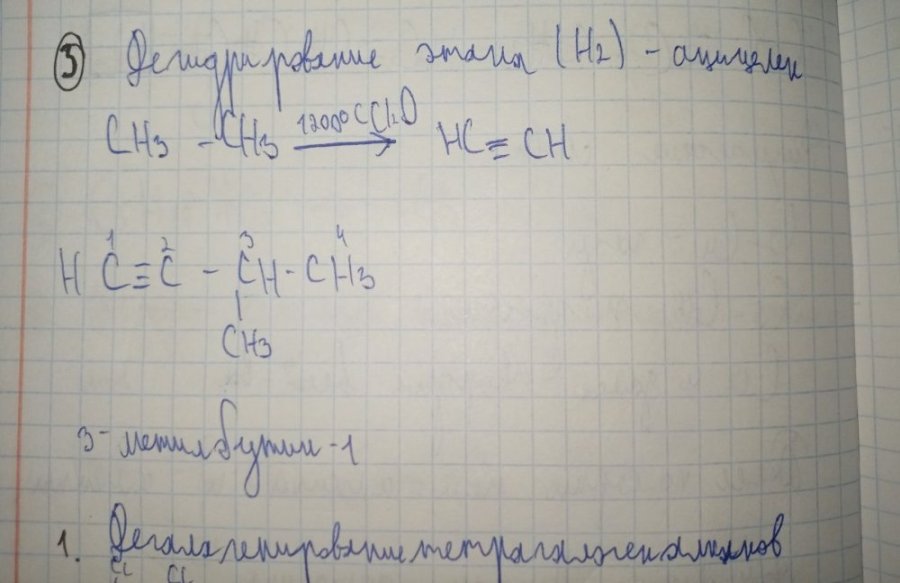 ③ Дегидрирование этана (H2) - ацицелен
CH3 - CH3 1200°C Cl2O → HC ≡ CH
1 2 3 4
HC ≡ C - CH - CH3
CH3
3-метилбутин-1
1. Дегалагенирование тетрагалогеналканов
Cl Cl